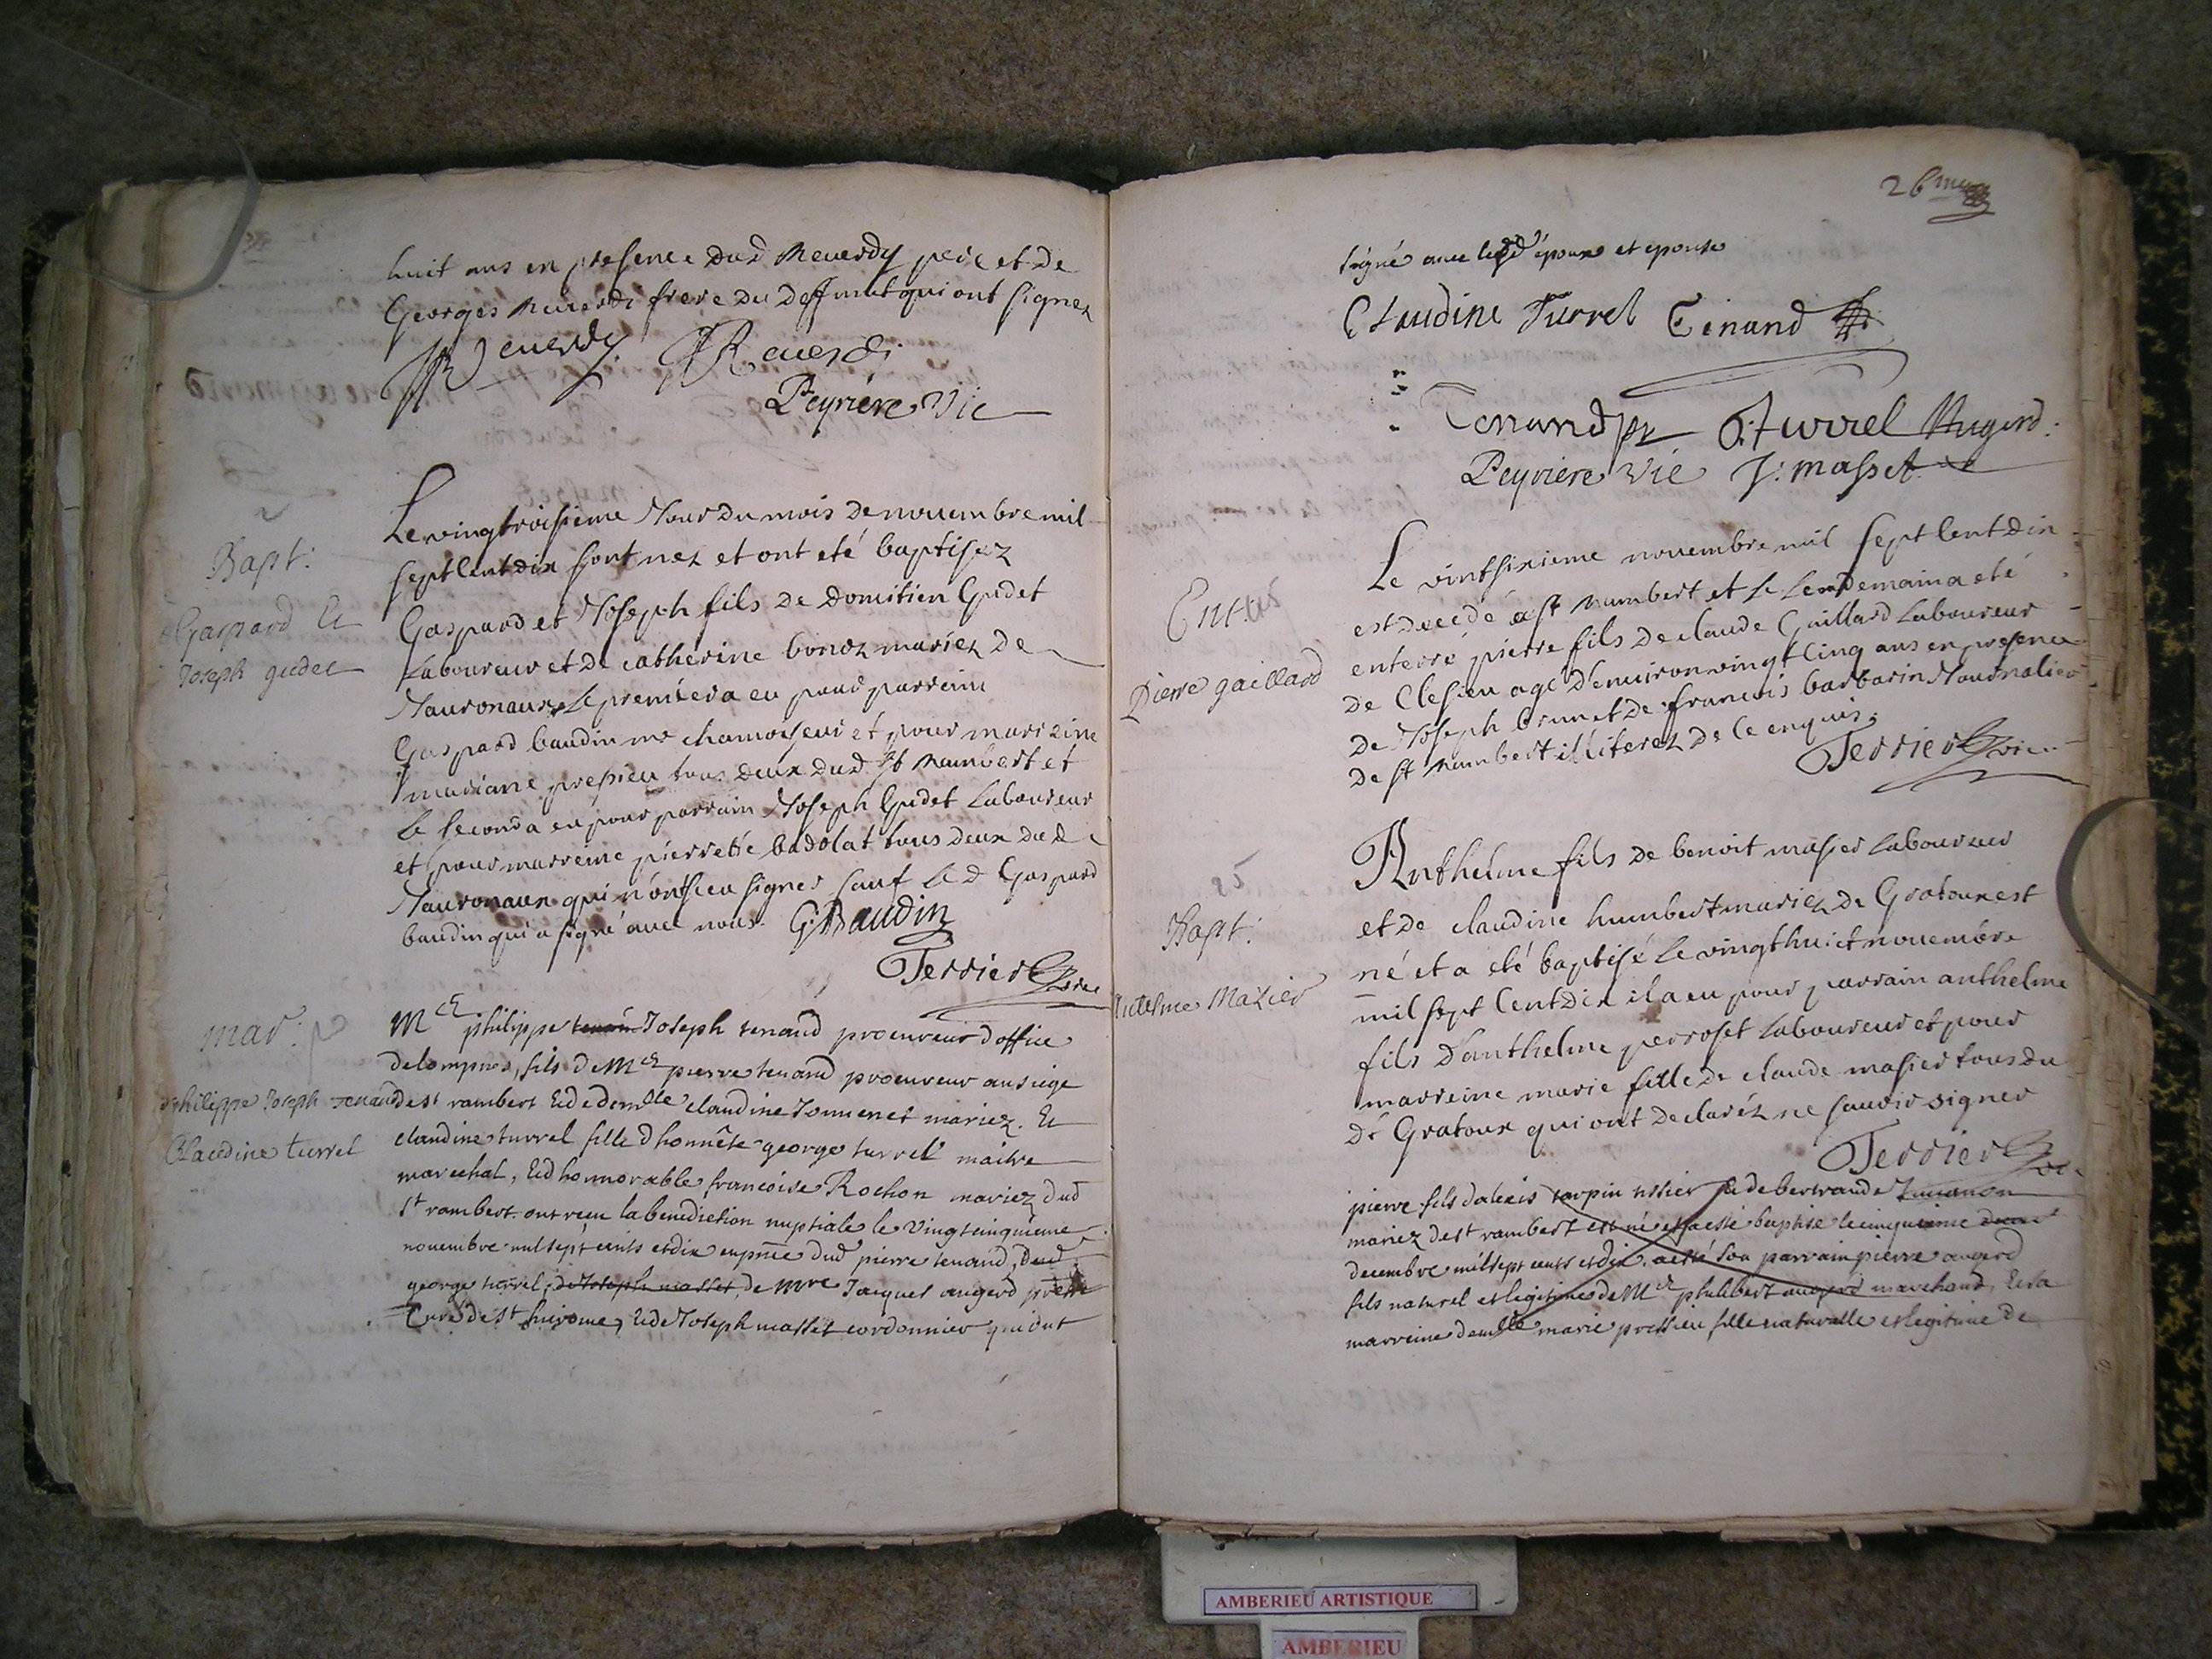 huit ans en presence dud Reuerdy pere et de
Georges Reuerdi frere du deffunct qui ont signez
Reuerdy Reuerdi
Peyriere Vic
Bapt:
Gaspard Et
Joseph gudet
Le vingtroisieme Jour du mois de nouembre mil
sept Cent dix sont nez et ont eté baptisez
Gaspard et Joseph fils de domitien Gudet
Laboureur et de catherine bonoz mariez de
Jauronaux Le premier a eu pour parrein
Gaspard baudin me chamoiseur et pour marreine
mariane presieu tous deux dud St Rambert et
Le second a eu pour parrain Joseph Gudet Laboureur
et pour marreine pierrette badolat tous deux dud
Jauronaux qui n'ont sceu signer sauf Le d Gaspard
baudin qui a signé auec nous. G Baudin
Terrier vic
mar:
philippe Joseph tenand
Claudine turrel
Me philippe Joseph tenand procureur d office
de lompnes, fils de Me pierre tenand procureur au siege
de st rambert Et de demlle claudine Jonnenet mariez. Et
claudine turrel fille d honnête george turrel maitre
marechal, Et d honnorable francoise Rochon mariez dud
St rambert ont receu la benediction nuptiale le vingtcinquieme
nouembre mil sept cents et dix en pnce dud pierre tenand, dud
george turrel, de Joseph masset, de Mre Jacques augerd pretre
Curé de St hierome, Et de Joseph masset cordonnier qui ont
26
signé auec lesd époux et epouse
Claudine Turrel Tenand
Tenand pr G: turrel Augerd:
Peyriere Vic J: masset
Ent:
Pierre gaillard
Le vintsixieme nouembre mil sept Cent dix
est decedé a st Rambert et le Lendemain a eté
enterré pierre fils de claude Gaillard Laboureur
de Clesieu agé d'enuiron vingt Cinq ans en presence
de Joseph brun et de francois barbarin Journalier
de st Rambert illiterez de ce enquis.
Terrier vic
25
Bapt:
Antelme Mazier
Anthelme fils de benoit masier Laboureur
et de claudine humbert mariez de Gratoux est
né et a eté baptisé Le vingthuict nouembre
mil sept Cent dix il a eu pour parrain anthelme
fils d'anthelme perroset Laboureur et pour
marreine marie fille de claude masier tous du
d Gratoux qui ont declaréz ne sauoir signer
Terrier vic
pierre fils d alexis tarpin tissier Et de bertrande
mariez de st rambert est né et a esté baptise le cinquieme
decembre mil sept cents et dix. a esté son parrain pierre augerd
fils naturel et legitime de Me philibert augerd marchand, Et la
marreine demlle marie pressieu fille naturelle et legitime de
AMBERIEU ARTISTIQUE
AMBERIEU